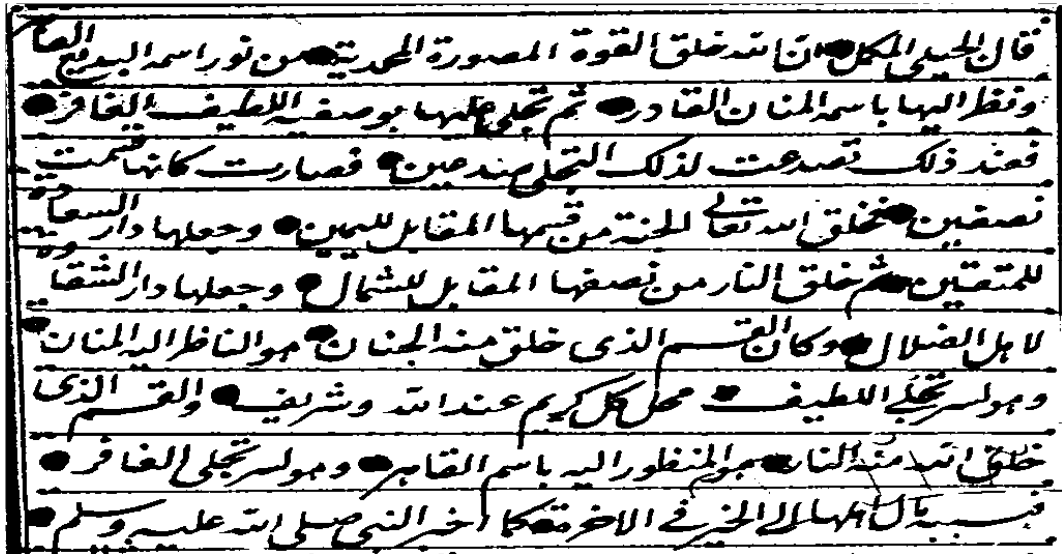 قال الجيلي المكمل ان الله خلق القوة المصورة المحمدية من نور اسمه البديع القادر
ونظر اليها باسمه المنان القادر ثم تجلى عليها بوصفيه اللطيف الغافر
فعند ذلك تصدعت لذلك التجلي صدعين فصارت كانها قسمت
نصفين فخلق الله تعالى الجنة من قسمها المقابل لليمين وجعلها دار السعادة
للمتقين ثم خلق النار من نصفها المقابل للشمال وجعلها دار الشقاوة
لاهل الضلال وكان القسم الذي خلق منه الجنان هو الناظر اليه المنان
وهو سر تجلي اللطيف محل كل كريم عند الله وشريف والقسم الذي
خلق الله منه النار هو المنظور اليه باسم القاهر وهو سر تجلي الغافر
الى الخير في الاخرة كما اخبر النبي صلى الله عليه وسلم